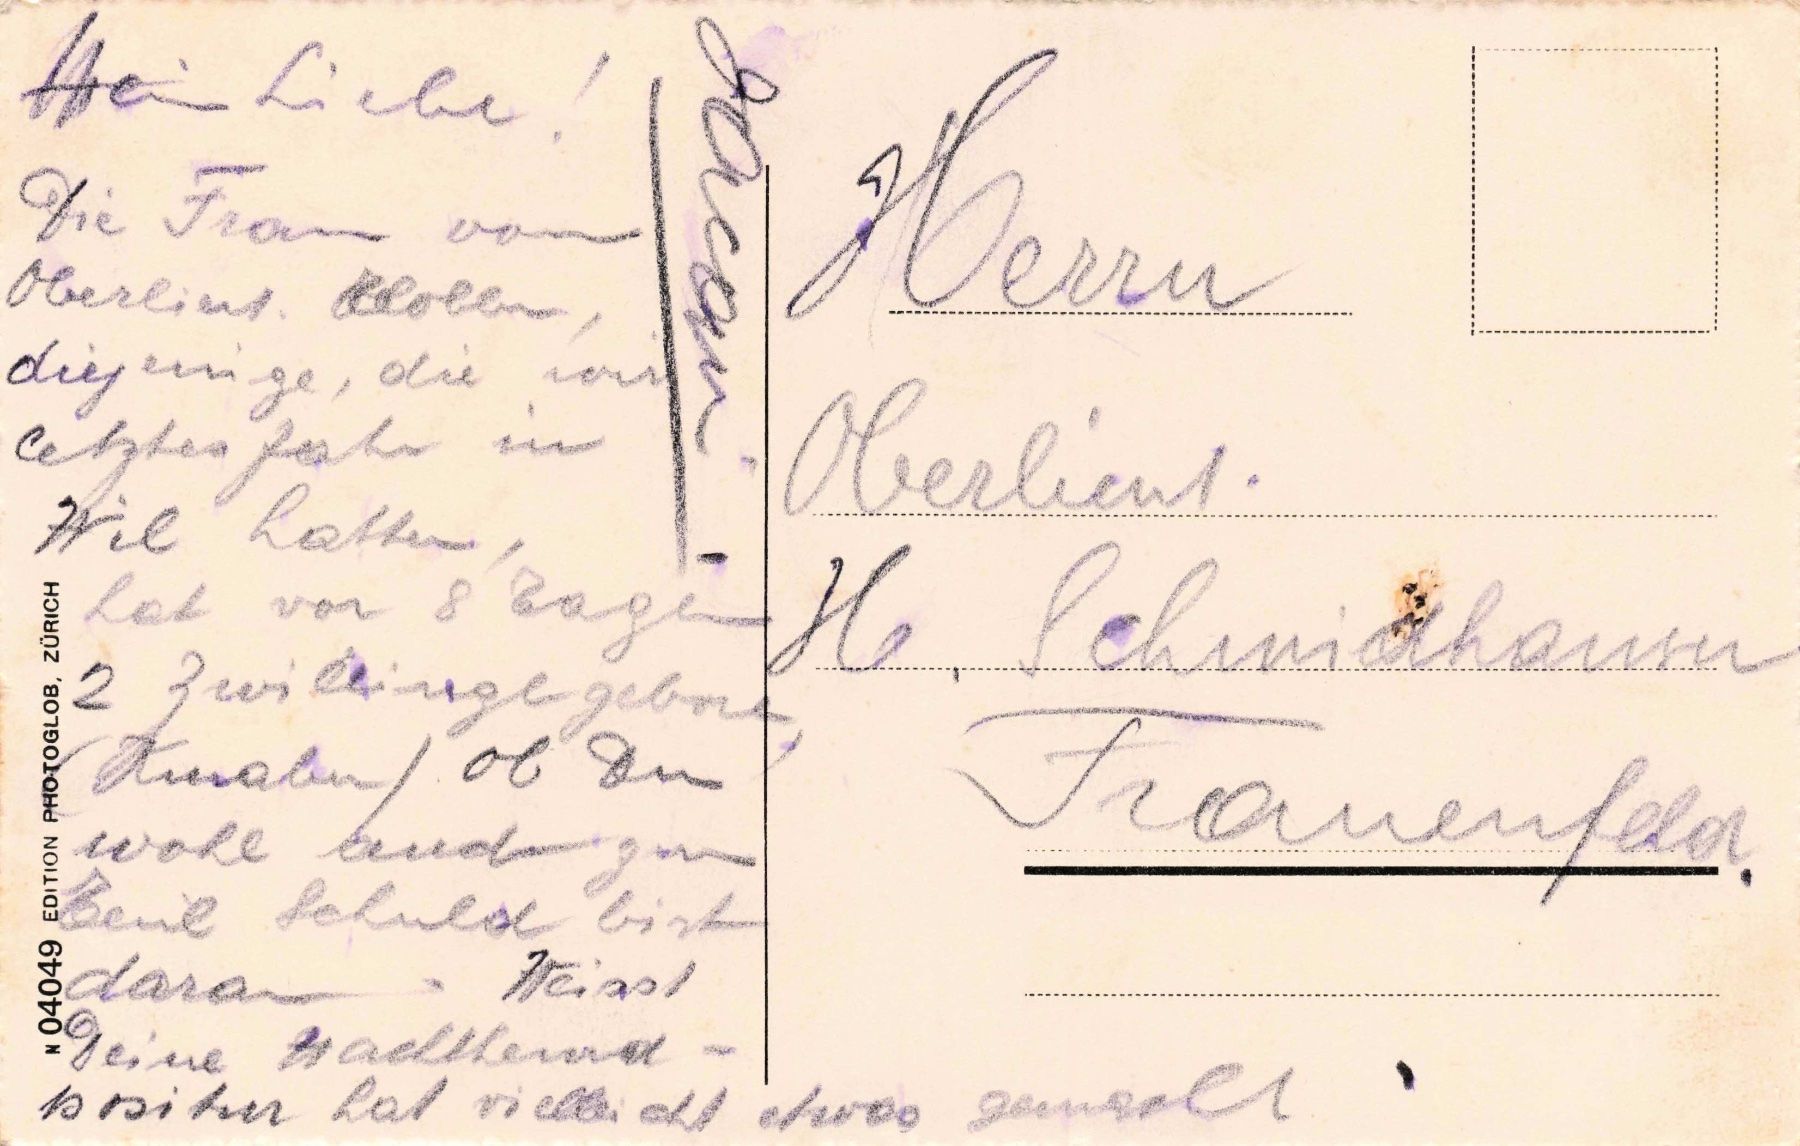 Mein Liebe!
Die Frau vom
Oberlieut. Klollen,
diejenige, die wir
letztes Jahr in
Wil hatten,
hat vor 8 Tagen
2 Zwillinge geboren,
(Knaben) ob Du
wohl auch zum
Teil Schuld bist
daran. Weisst
Deine Nachthemd-
positur hat vielleicht etwas gemacht
Herrn
Oberlieut.
H. Schmidhauser
Frauenfeld.
N 04049 EDITION PHOTOGLOB, ZÜRICH